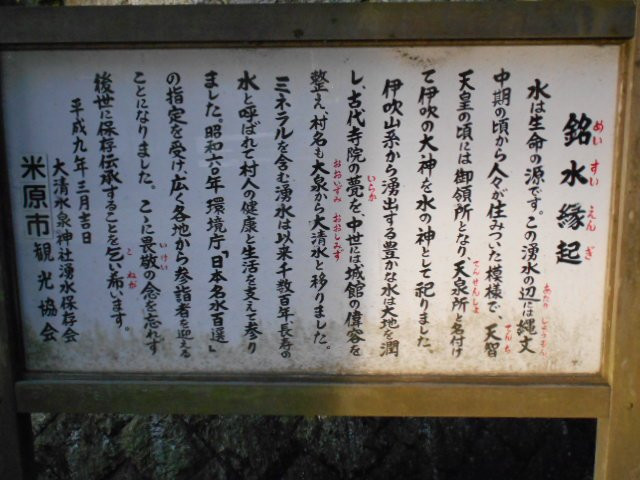 銘水縁起
めいすいえんぎ
水は生命の源です。この湧水の辺には縄文
あたり じょうもん
中期の頃から人々が住みついた模様で、天智
てんち
天皇の頃には御領所となり、天泉所と名付け
てんせんしょ
て伊吹の大神を水の神として祀りました。
伊吹山系から湧出する豊かな水は大地を潤
し、古代寺院の甍を、中世には、城館の偉容を
いらか
整え、村名も大泉から大清水と移りました。
おおいずみ おおしみず
ミネラルを含む湧水は以来千数百年、長寿の
水と呼ばれて村人の健康と生活を支えて参り
ました。昭和六〇年 環境庁「日本名水百選」
の指定を受け、広く各地から参詣者を迎える
ことになりました。こゝに畏敬の念を忘れず
いけい
後世に保存伝承することを乞い希います。
こ ねが
平成九年三月吉日
大清水泉神社湧水保存会
米原市観光協会